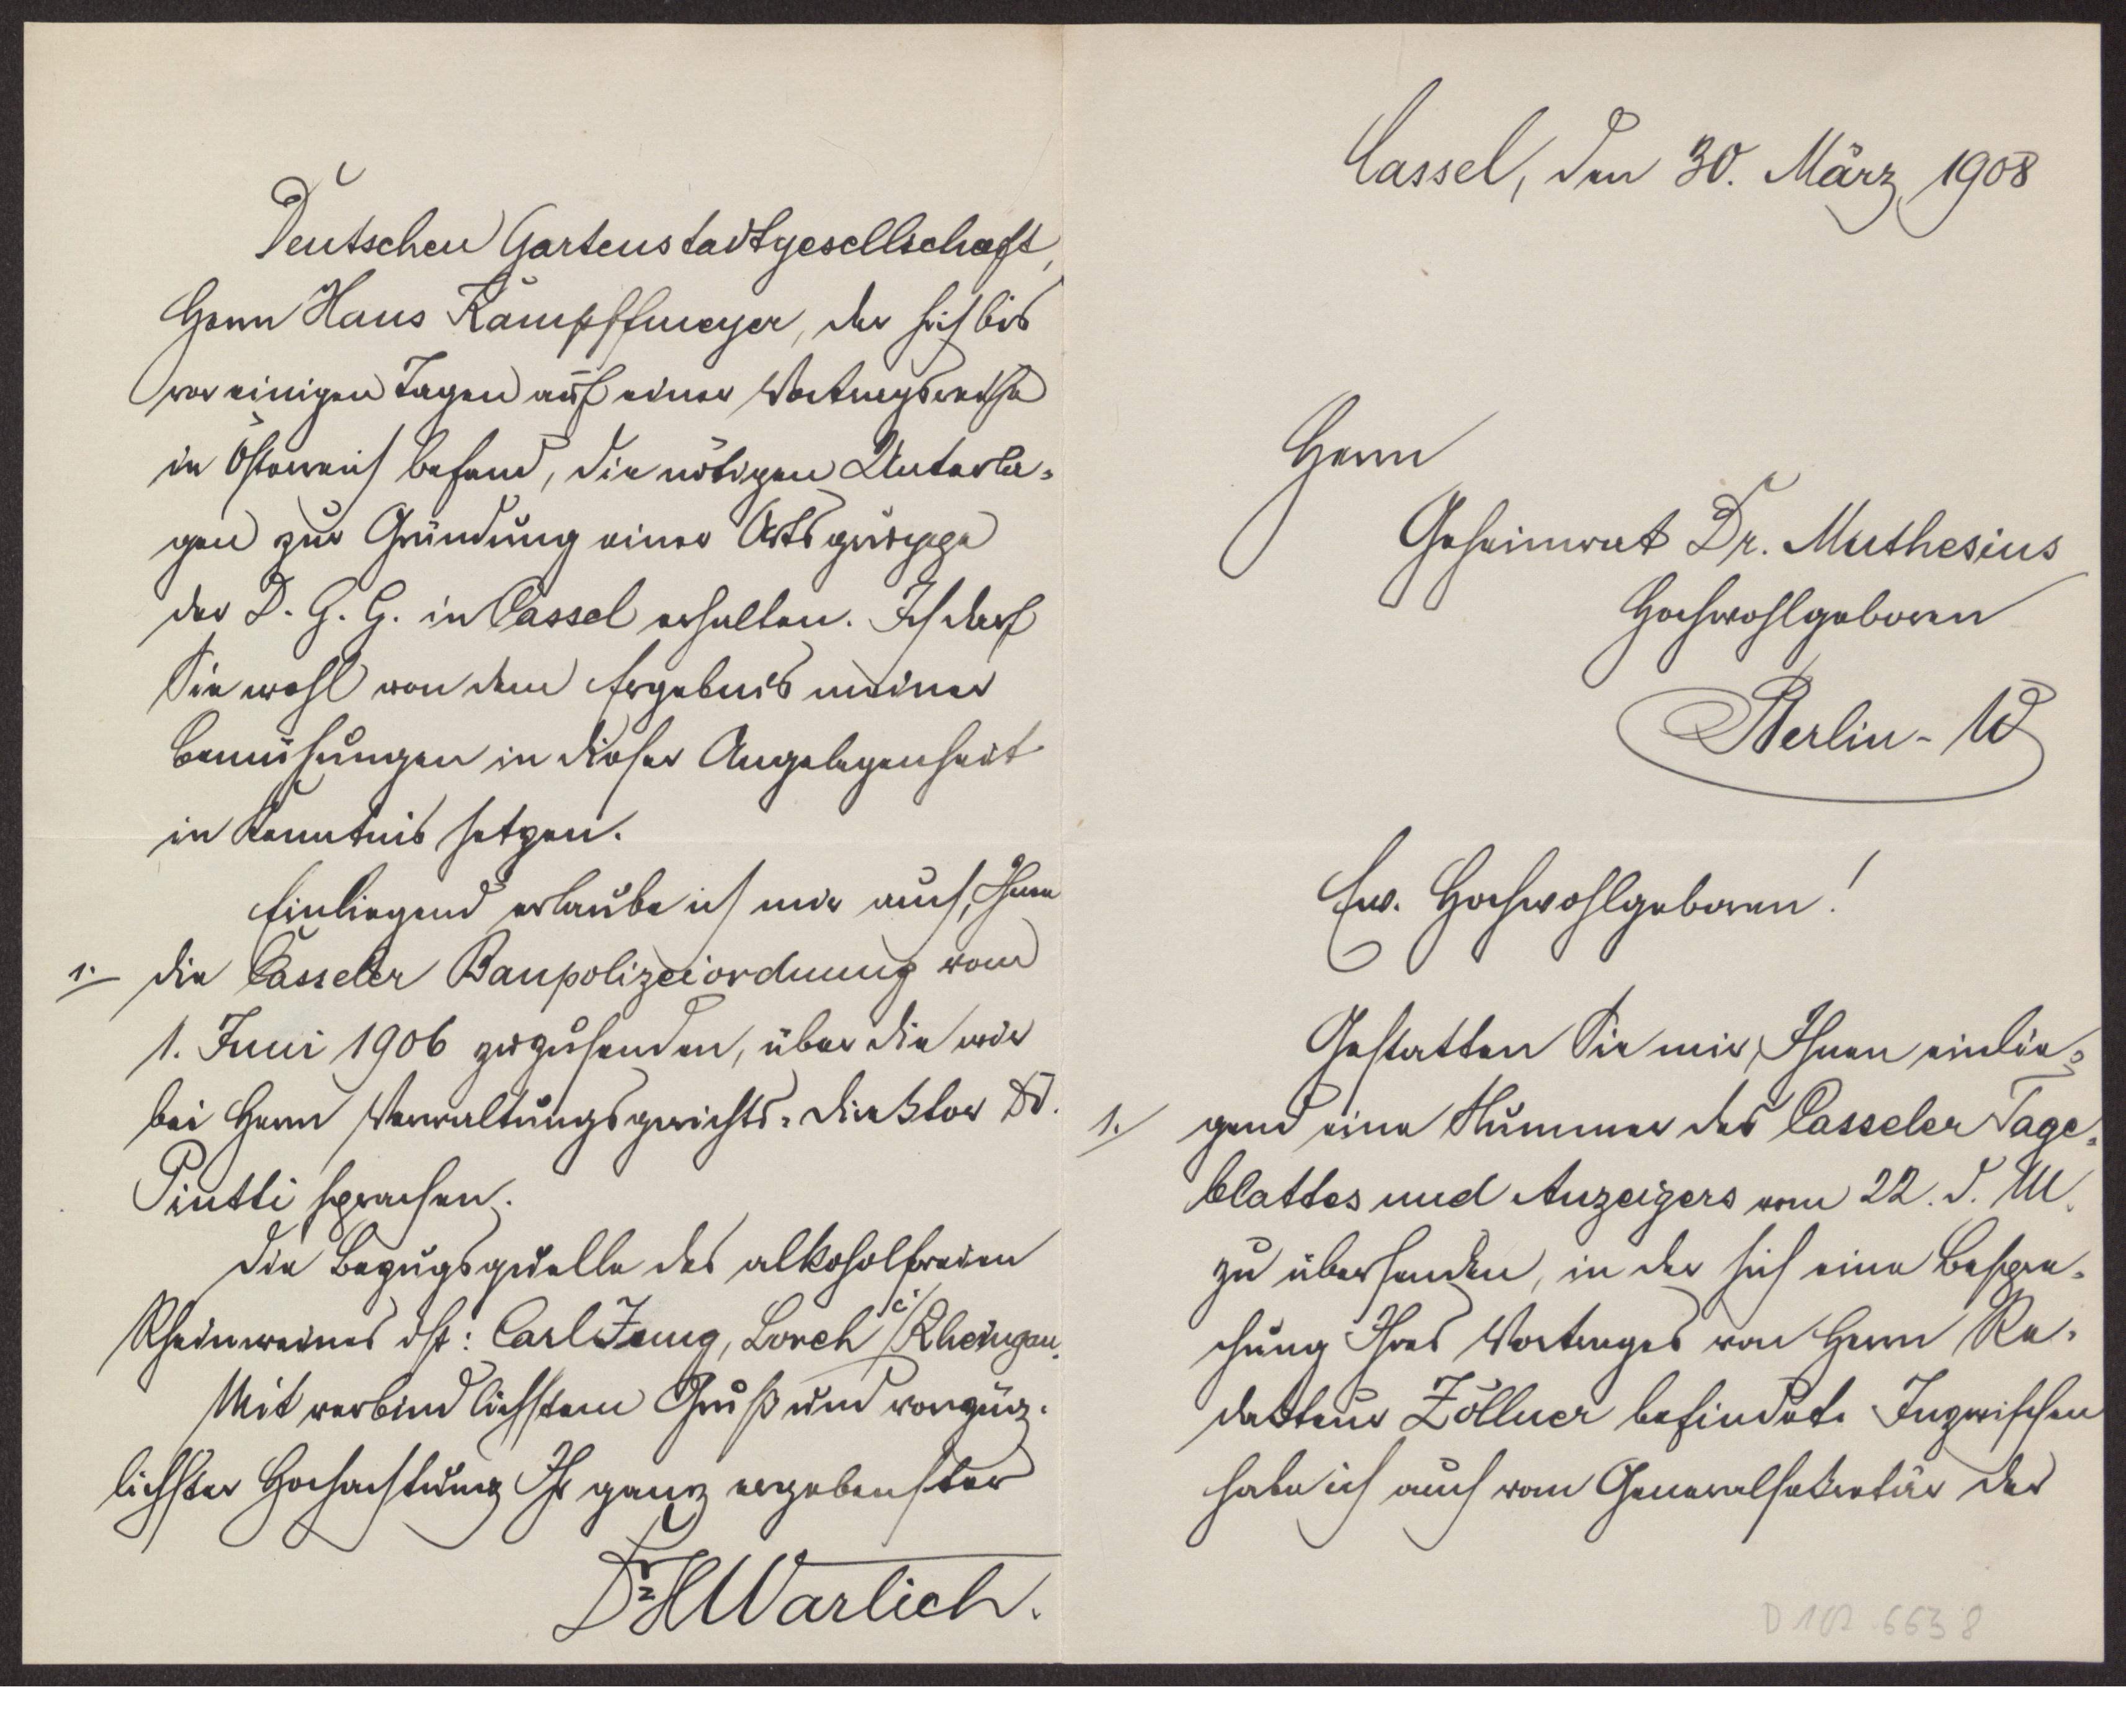 Cassel, den 30. März 1908
Herrn
Geheimrat Dr. Muthesius
Hochwohlgeboren
Berlin-W
Ew. Hochwohlgeboren!
Gestatten Sie mir, Ihnen einlie-
1. gend eine Nummer des Casseler Tage-
blattes und Anzeigers vom 22. d. M.
zu übersenden, in der sich eine Bespre-
chung Ihres Vortrages von Herrn Re-
dakteur Zöllner befindet. Inzwischen
habe ich auch vom Generalsekretär der
D 102 6638
Deutschen Gartenstadtgesellschaft,
Herrn Hans Kampffmeyer, der sich bis
vor einigen Tagen auf einer Vortragsreise
in Österreich befand, die nötigen Unterla-
gen zur Gründung einer Ortsgruppe
der D. G. G. in Cassel erhalten. Ich darf
Sie wohl von dem Ergebnis meiner
Bemühungen in dieser Angelegenheit
in Kenntnis setzen.
Einliegend erlaube ich mir auch, Ihnen
1. die Casseler Baupolizeiordnung vom
1. Juni 1906 zuzusenden, über die wir
bei Herrn Verwaltungsgerichts-Direktor Dr.
Piutti sprachen.
Die Bezugsquelle des alkoholfreien
Rheinweines ist: Carl Jung, Lorch i/Rheingau.
Mit verbindlichstem Gruß und vorzüg-
lichster Hochachtung Ihr ganz ergebenster
Dr. H Warlich.